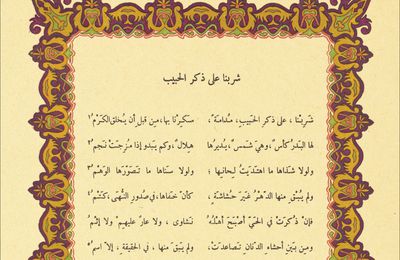 شربنا على ذكر الحبيب
شَرِبْنَا ، على ذكرِ الحَبيبِ ، مُدامَةً ، سكِرْنا بها ، من قبلِ أن يُخلق الكَرْمُ ١
لها البَدْرُ كأسٌ ، وهيَ شَمسٌ ، يُديرُها هلالٌ ، وكم يبدو إذا مُزِجَتْ نَجمُ ٢
ولولا شذَاها ما اهتدَيتُ لِحانِها ؛ ولولا سَناها ما تَصَوّرَها الوَهْمُ ٣
ولم يُبْقِ منها الدّهْرُ غيرَ حُشاشَةٍ ، كأنّ خَفاها ، في صُدورِ النُّهى ، كَتْمُ ٤
فإنْ ذُكرَتْ في الحَيّ أصْبَحَ أهْلُهُ نَشاوى ، ولا عارٌ عليهِمْ ولا إثْمُ
ومِن بَينِ أحشاء الدّنانِ تَصاعَدَتْ ، ولم يَبْقَ مِنْها ، في الحَقيقَةِ ، إلاّ اسمُ ٥